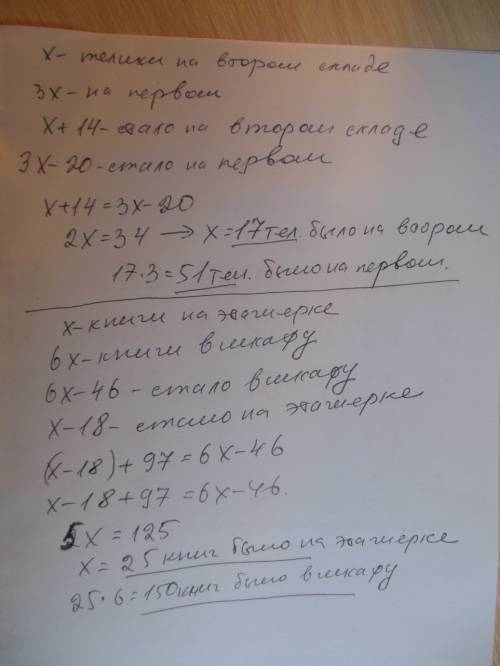 x - телики на втором складе
3x - на первом
x + 14 - стало на втором складе
3x - 20 - стало на первом
x + 14 = 3x - 20
2x = 34 → x = 17 тел. было на втором
17 · 3 = 51 тел. было на первом.
x - книги на этажерке
6x - книги в шкафу
6x - 46 - стало в шкафу
x - 18 - стало на этажерке
(x - 18) + 97 = 6x - 46
x - 18 + 97 = 6x - 46.
5x = 125
x = 25 книг было на этажерке
25 · 6 = 150 книг было в шкафу